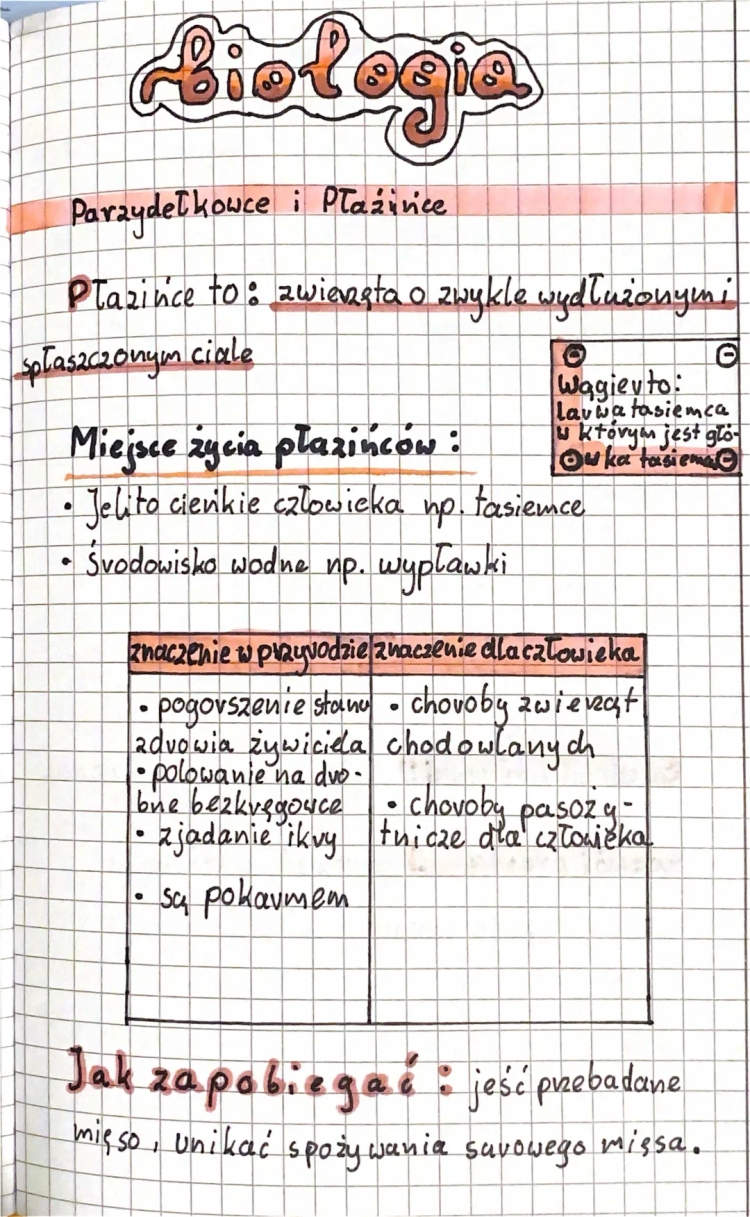 biologia
Parzydełkowce i Płazińce
Płazińce to: zwierzęta o zwykle wydłużonym i
spłaszczonym ciale
Wągier to:
larwa tasiemca
w którym jest głó-
wka tasiemca
Miejsce życia płazińców:
• Jelito cieńkie człowieka np. tasiemce
• Środowisko wodne np. wypławki
znaczenie w przyrodzie znaczenie dla człowieka
• pogorszenie stanu
zdrowia żywiciela
• polowanie na dro-
bne bezkręgowce
• zjadanie ikry
• są pokarmem
• choroby zwierząt
chodowlanych
• choroby pasoży-
tnicze dla człowieka
Jak zapobiegać: jeść przebadane
mięso, unikać spożywania surowego mięsa.